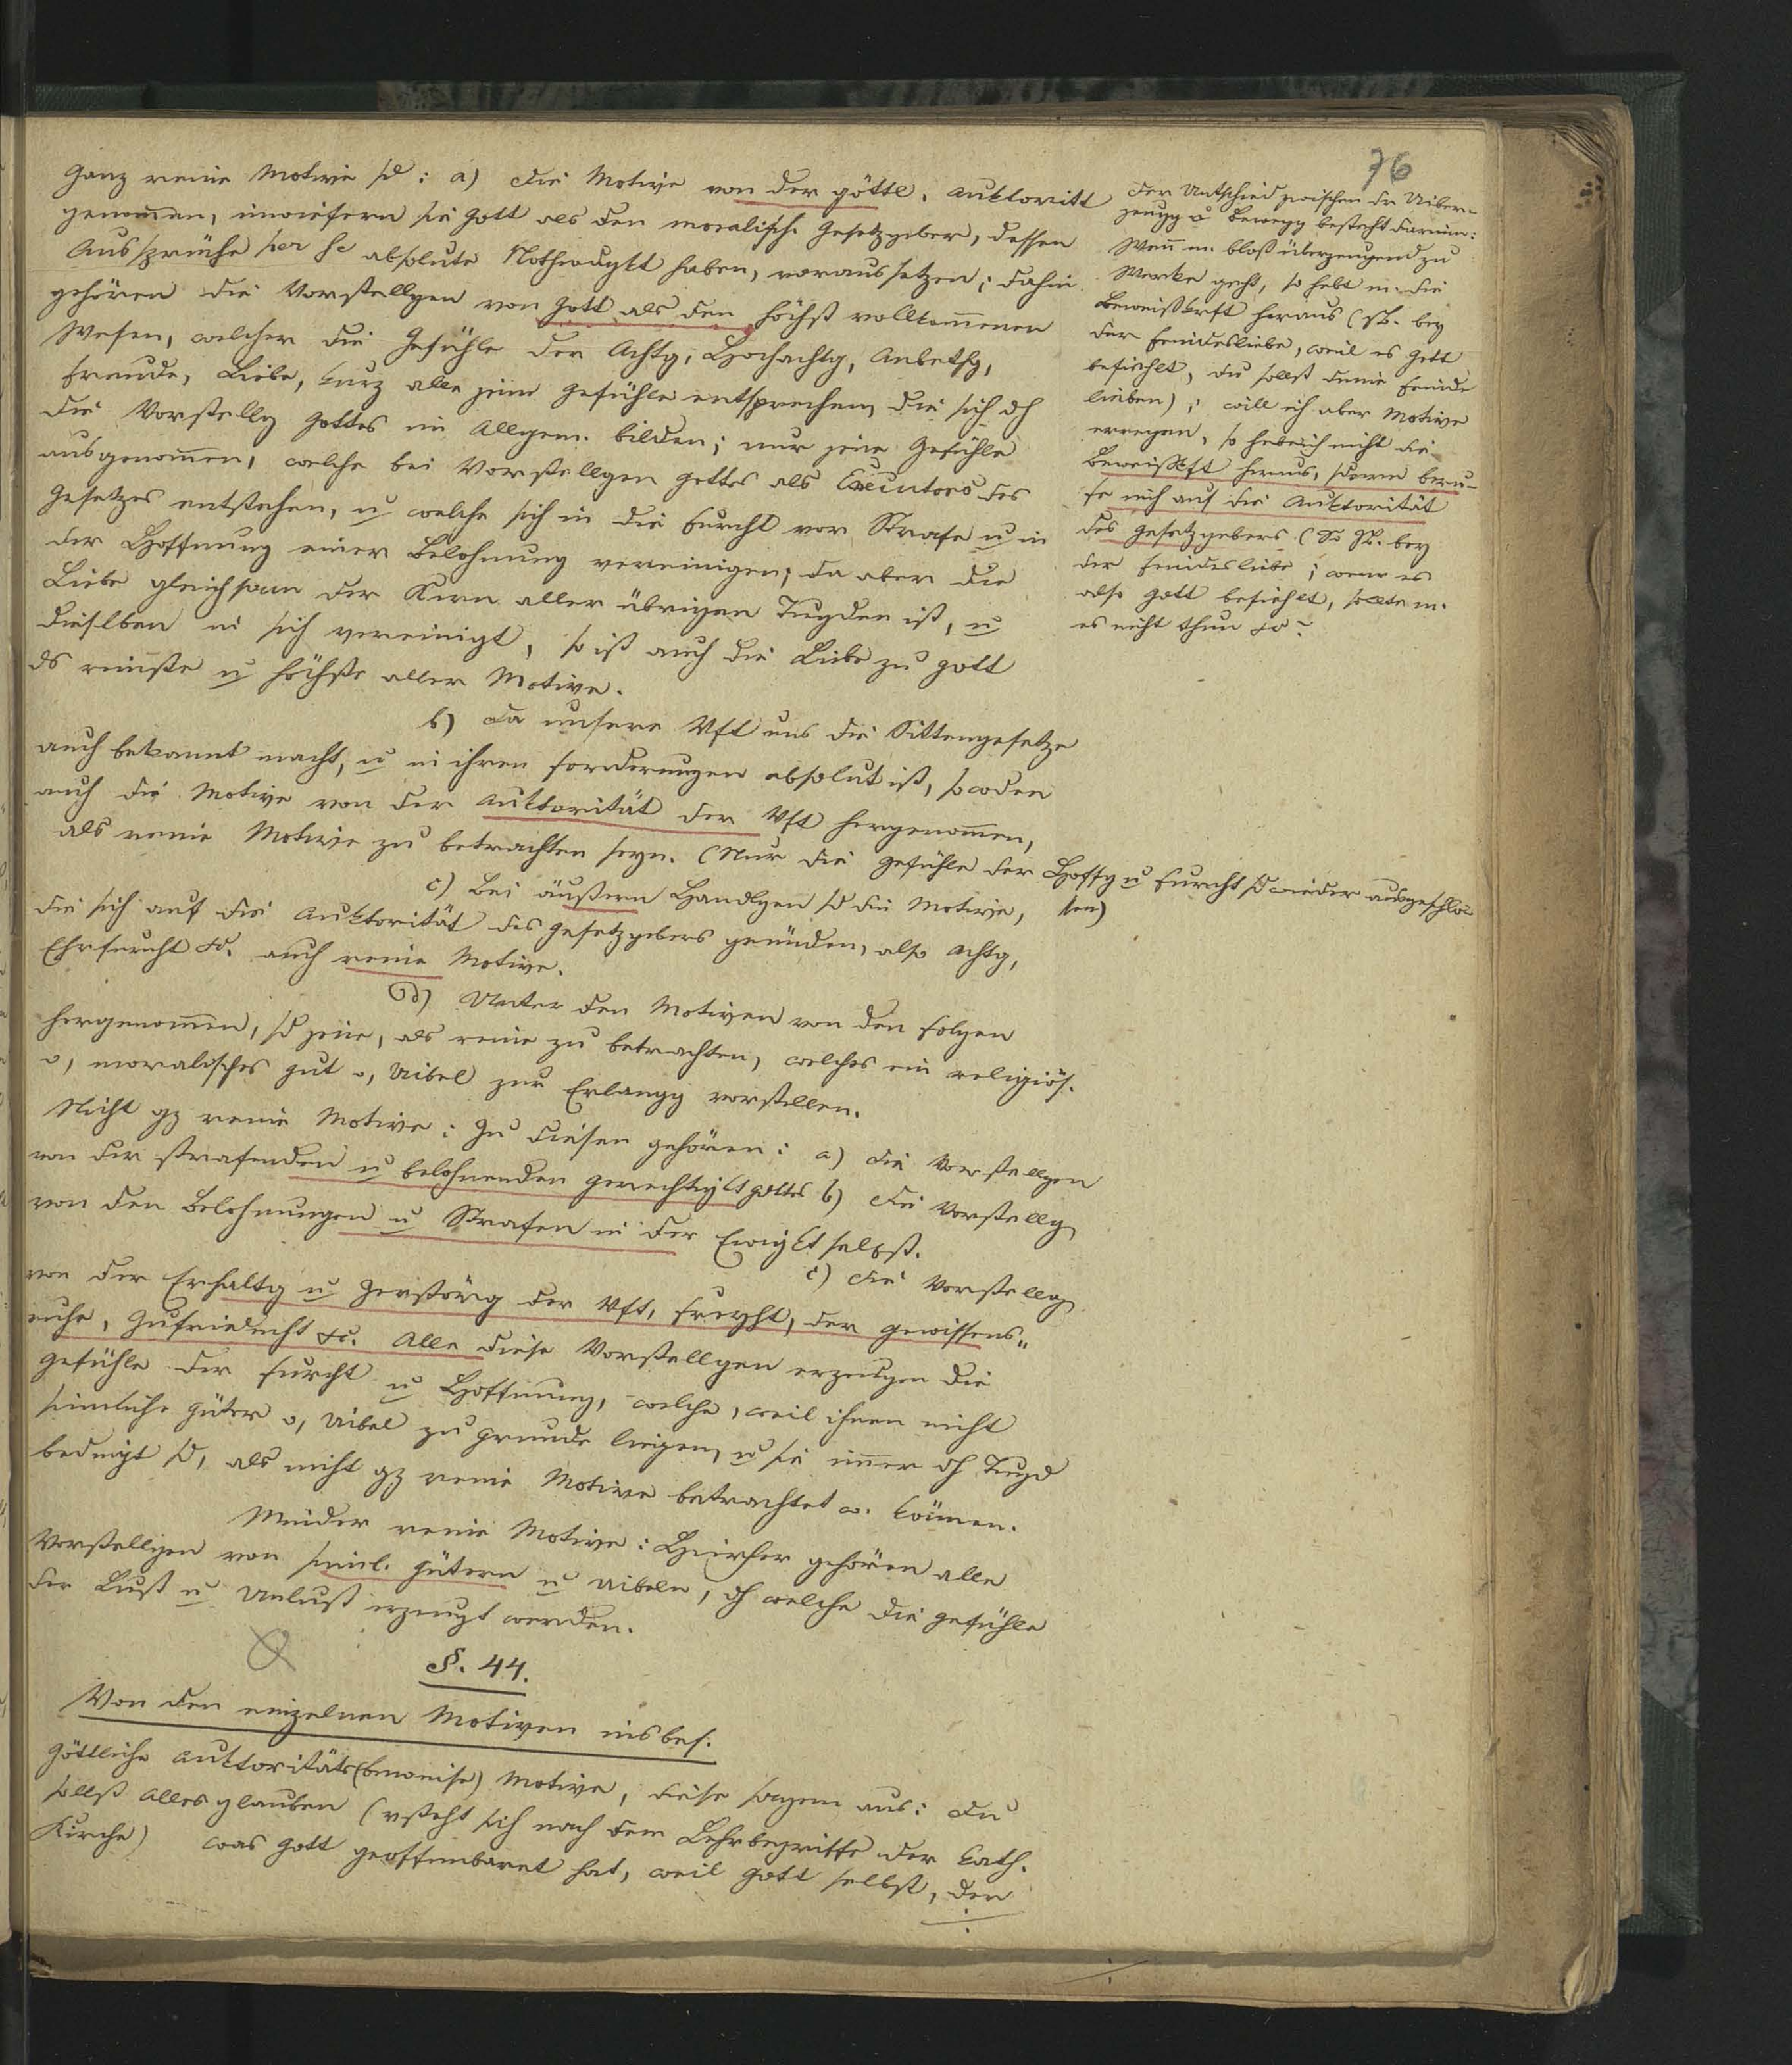 76
Ganz reine Motive sd: a) die Motive von der göttl. Auktorität
genommen, inwiefern sie Gott als den moralisch. Gesetzgeber, dessen
Aussprüche per se absolute Nothwdgkt haben, voraussetzen; dahin
gehören die Vorstellgen von Gott als den höchst vollkommenen
Wesen, welcher die Gefühle der Achtg, Hochachtg, Anbethg,
Freude, Liebe, kurz alle jene Gefühle entsprechen, die sich dh
die Vorstellg Gottes im Allgem. bilden; nur jene Gefühle
ausgenommen, welche bei Vorstellgen Gottes als Executors des
Gesetzes entstehen, u welche sich in die Furcht vor Strafe u in
der Hoffnung einer Belohnung vereinigen; da aber die
Liebe gleichsam der Kern aller übrigen Tugden ist, u
dieslben in sich vereinigt, so ist auch die Liebe zu Gott
ds reinste u höchste aller Motive.
b) Da unsere Vft uns die Sittengesetze
auch bekannt macht, u in ihren Forderungen absolut ist, so wden
auch die Motive von der Auktorität der Vft hergenommen,
als reine Motive zu betrachten seyn. (Nur die Gefühle der Hoffg u Furcht sd wieder ausgeschlos
sen)
c) Bei äußern Handlgen sd die Motive,
die sich auf die Auktorität des Gesetzgebers gründen, also Achtg,
Ehrfurcht &c. auch reine Motive.
d) Unter den Motiven von den Folgen
hergenommen, sd jene, als reine zu betrachten, welches ein religiös.
o, moralisches Gut o, Uibel zur Erlangg vorstellen.
Nicht gz reine Motive: Zu diesen gehören: a) die Vorstellgen
von der strafenden u belohnenden Gerechtigkt Gottes b) die Vorstellg
von den Belohnungen u Strafen in der Ewigkt selbst.
c) die Vorstellg
von der Erhaltg u Zerstörg der Vft, Freyht, der Gewissens„
ruhe, Zufriednht &c. Alle diese Vorstellgen erzeugen die
Gefühle der Furcht u Hoffnung, welche, weil ihnen nicht
sinnliche Güter o, Uibel zu Grunde liegen, u sie immer dh Tugd
bedingt sd, als nicht gz reine Motive betrachtet w. können.
Minder reine Motive: Hierher gehören alle
Vorstellgen von sinnl. Gütern u Uibeln, dh welche die Gefühle
der Lust u Unlust erzeugt werden.
§. 44.
Von den einzelnen Motiven insbes.
Göttliche Auktoritäts(beweise) Motive, diese sagen aus: Du
sollst Alles glauben (vsteht sich nach dem Lehrbegriffe der kath.
Kirche) was Gott geoffenbaret hat, weil Gott selbst, der
Der Untschied zwischen dr Uiber-
zeugg u Bewegg besteht darin:
Wenn m. bloß überzeugend zu
Werke geht, so hebt m. die
Beweißkrft heraus (zB. bey
der Feindesliebe, weil es Gott
befiehlt, du sollst deine Feinde
lieben); will ich aber Motive
erregen, so hebe ich nicht die
Beweißkft heraus, sdern beru-
fe mich auf die Auktorität
des Gesetzgebers (So zB. bey
der Feindesliebe; wenn es
also Gott befiehlt, sollte m.
es nicht thun &c?